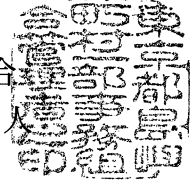 東京都島嶼
町村一部事務組
合管理者之印
人